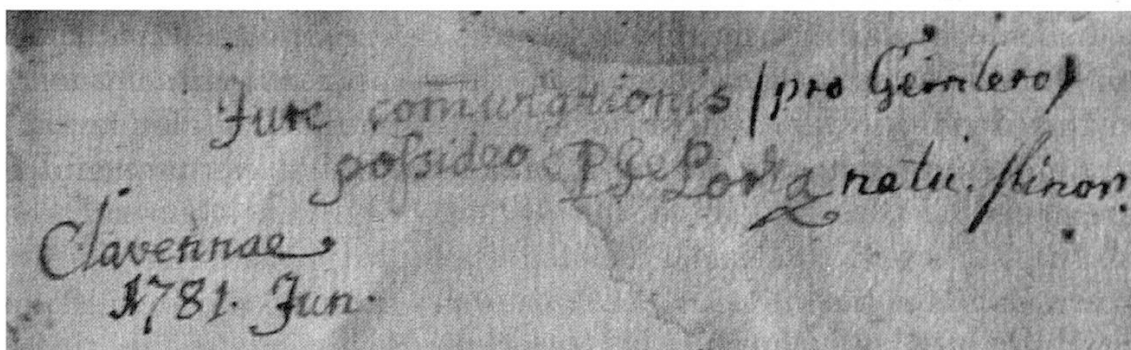 Jure com̄utationis (pro Geinlero)
possideo P de Porta natu. Minor.
Clavennae
1781. Jun.